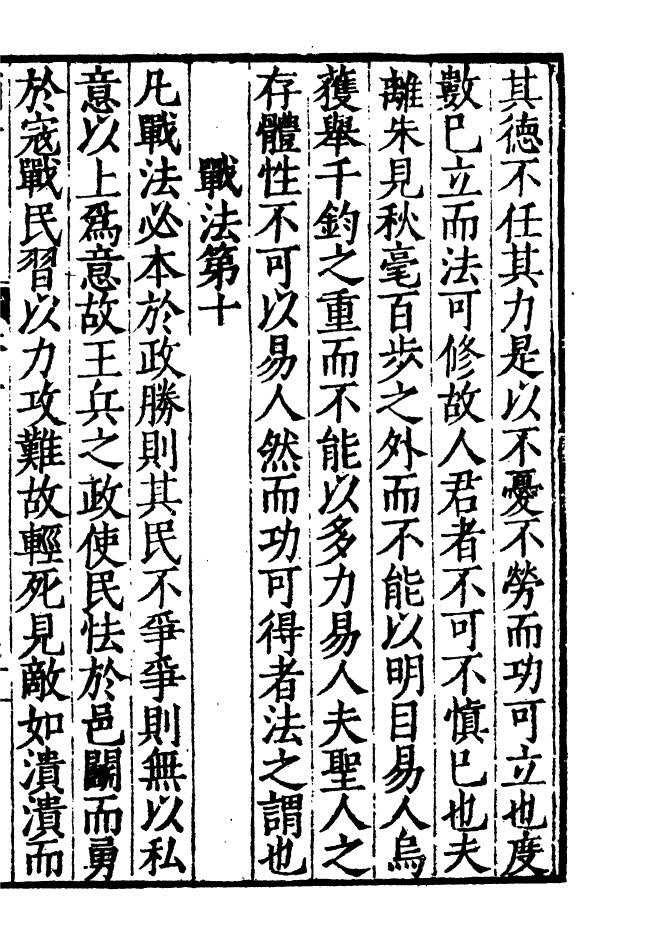 其德不任其力是以不憂不勞而功可立也度
數已立而法可修故人君者不可不慎已也夫
離朱見秋毫百步之外而不能以明目易人烏
獲舉千鈞之重而不能以多力易人夫聖人之
存體性不可以易人然而功可得者法之謂也
戰法第十
凡戰法必本於政勝則其民不爭爭則無以私
意以上爲意故王兵之政使民怯於邑鬬而勇
於寇戰民習以力攻難故輕死見敵如潰潰而